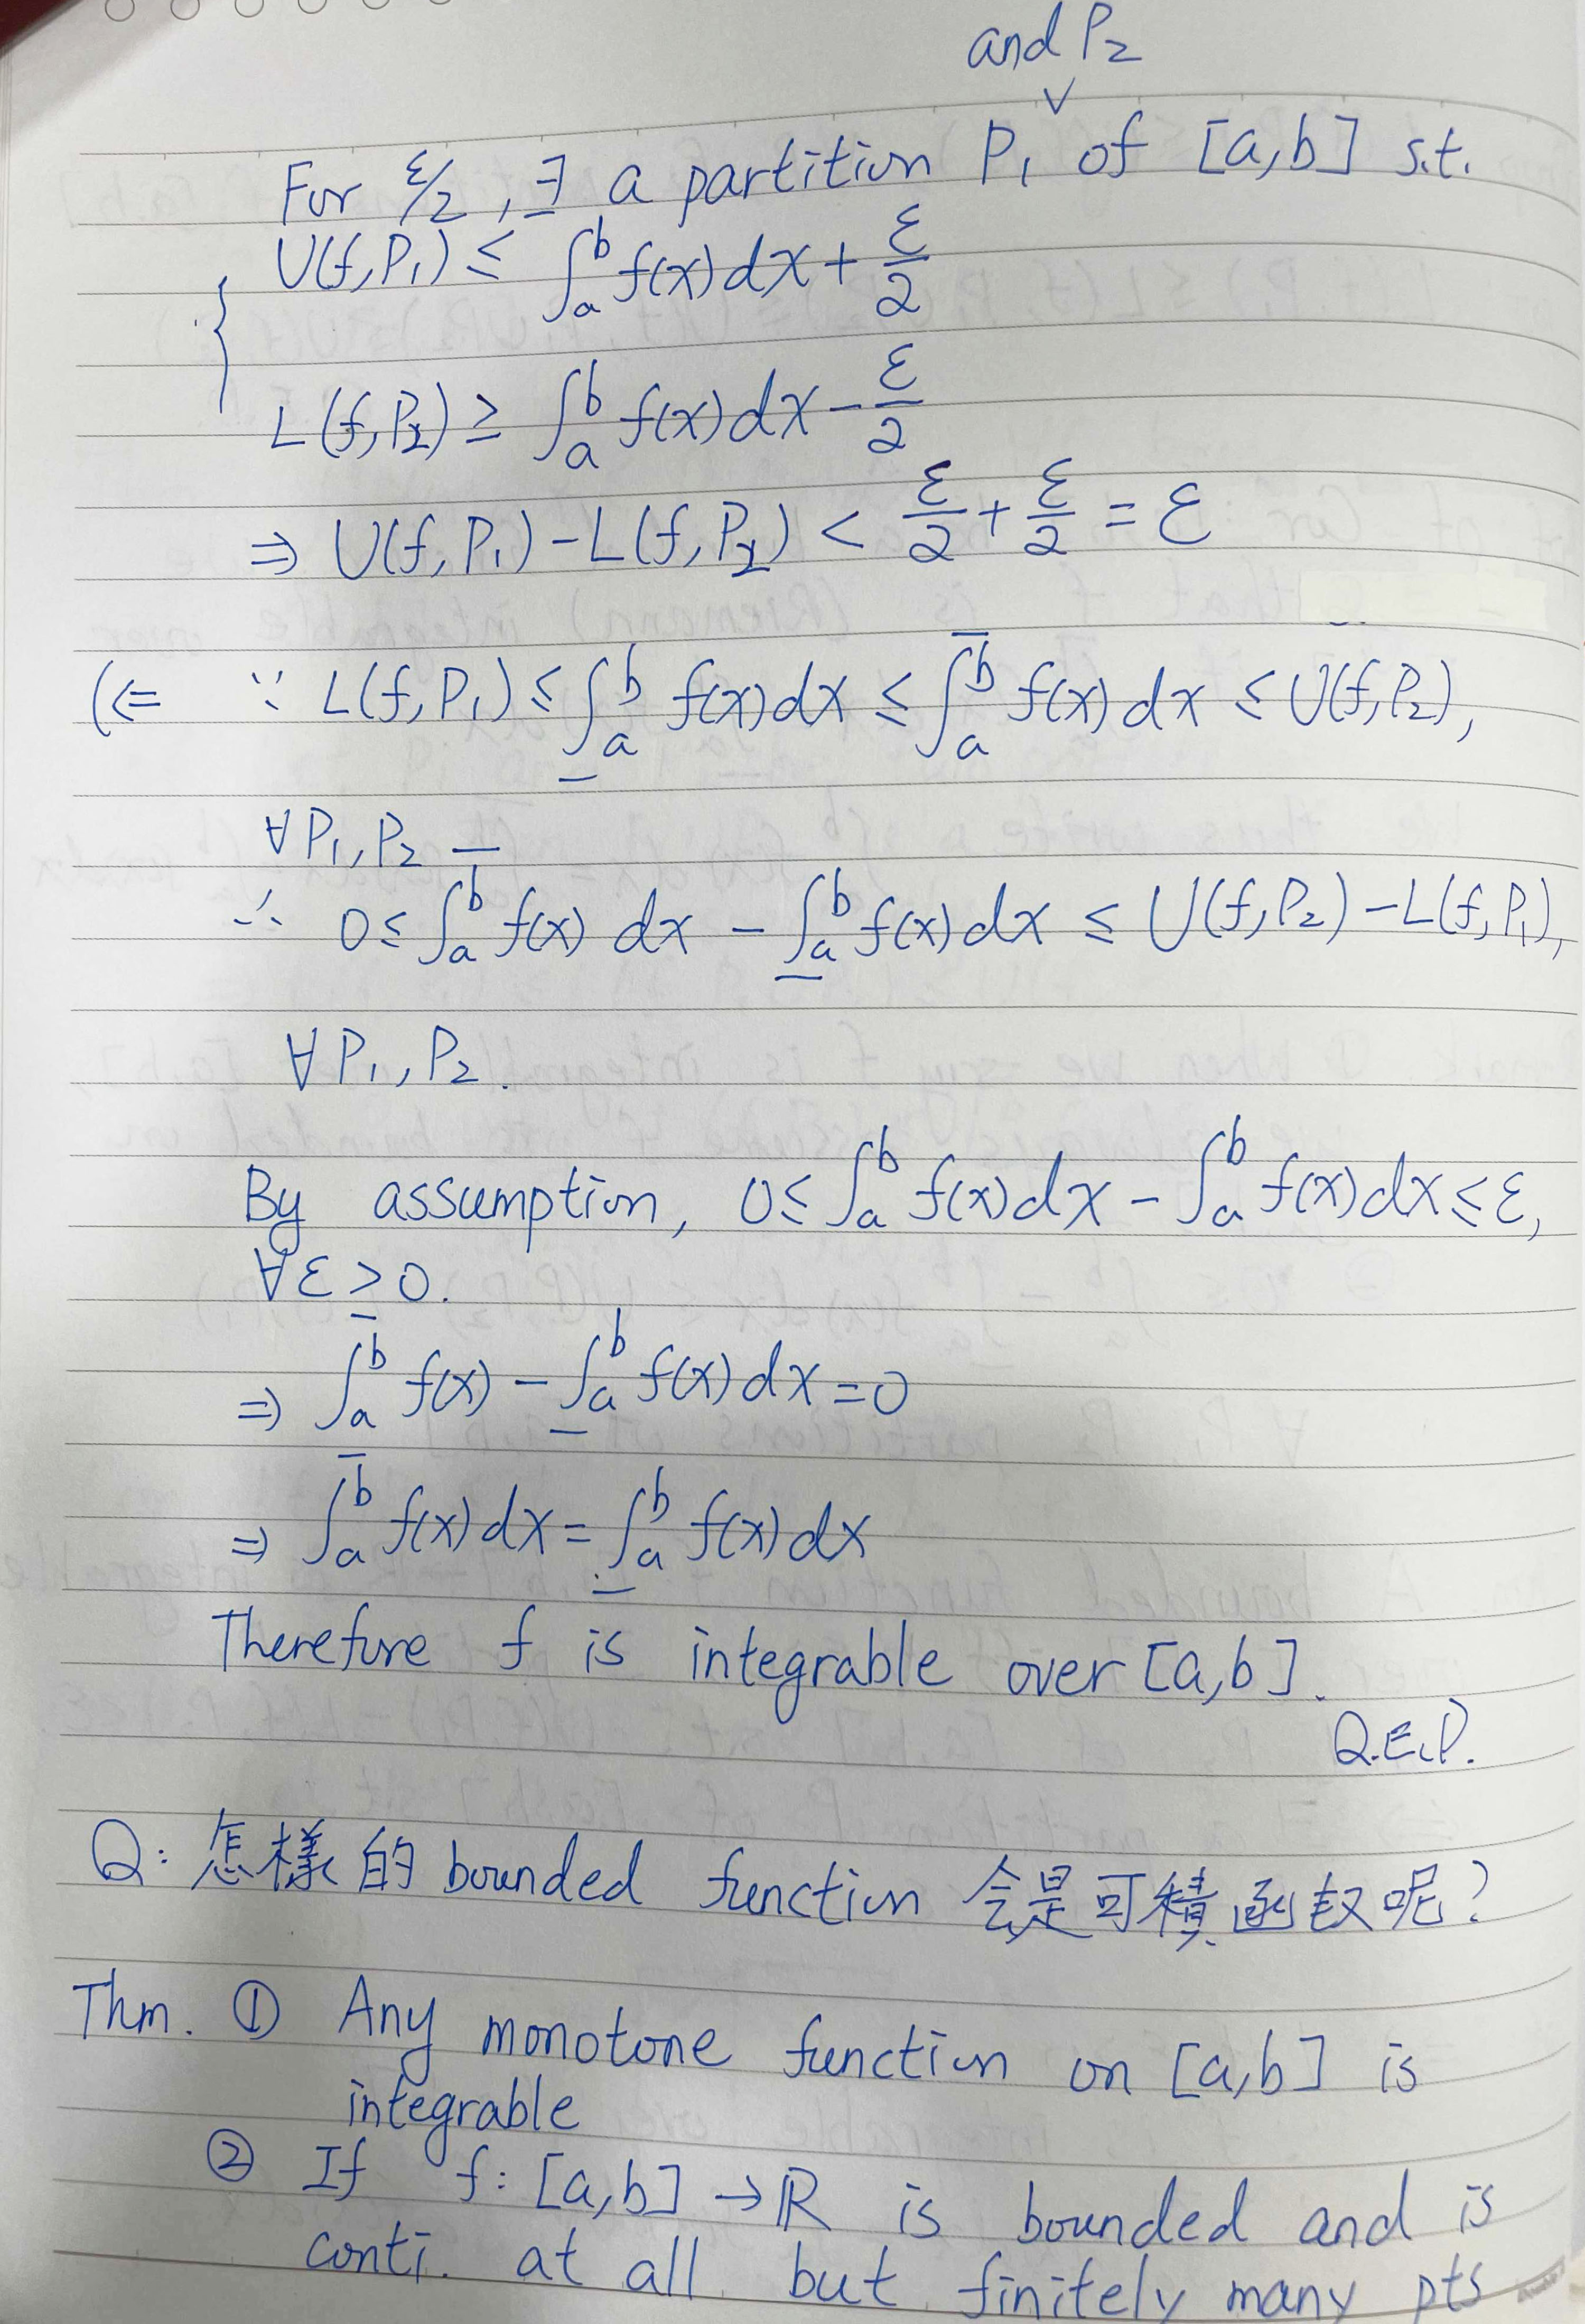 and P₂
For ε/2, ∃ a partition P₁ ∨ of [a,b] s.t.
U(f,P₁) ≤ ∫ₐᵇ f(x)dx + ε/2
L(f,P₂) ≥ ∫ₐᵇ f(x)dx - ε/2
⇒ U(f,P₁) - L(f,P₂) < ε/2 + ε/2 = ε
(⇐ ∵ L(f,P₁) ≤ ∫ₐᵇ f(x)dx ≤ ∫ₐᵇ f(x)dx ≤ U(f,P₂),
∀P₁,P₂
∴ 0 ≤ ∫ₐᵇ f(x) dx - ∫ₐᵇ f(x)dx ≤ U(f,P₂) - L(f,P₁),
∀P₁,P₂.
By assumption, 0 ≤ ∫ₐᵇ f(x)dx - ∫ₐᵇ f(x)dx ≤ ε,
∀ε > 0.
⇒ ∫ₐᵇ f(x) - ∫ₐᵇ f(x)dx = 0
⇒ ∫ₐᵇ f(x)dx = ∫ₐᵇ f(x)dx
Therefore f is integrable over [a,b].
Q.E.D.
Q: 怎樣的 bounded function 会是可積函数呢?
Thm. ① Any monotone function on [a,b] is
integrable
② If f: [a,b] → ℝ is bounded and is
conti. at all but finitely many pts